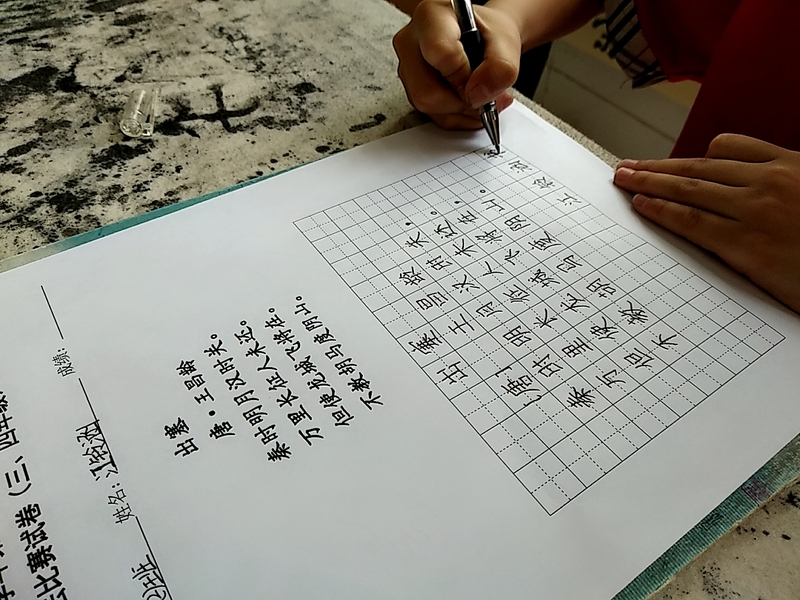 比赛试卷（三、四年级
班
姓名：
成绩：
出塞
唐·王昌龄
秦时明月汉时关。
万里长征人未还。
但使龙城飞将在。
不教胡马度阴山。
出塞
唐 王昌龄
秦时明月汉时关。
万里长征人未还。
但使龙城飞将在。
不教胡马度阴山。